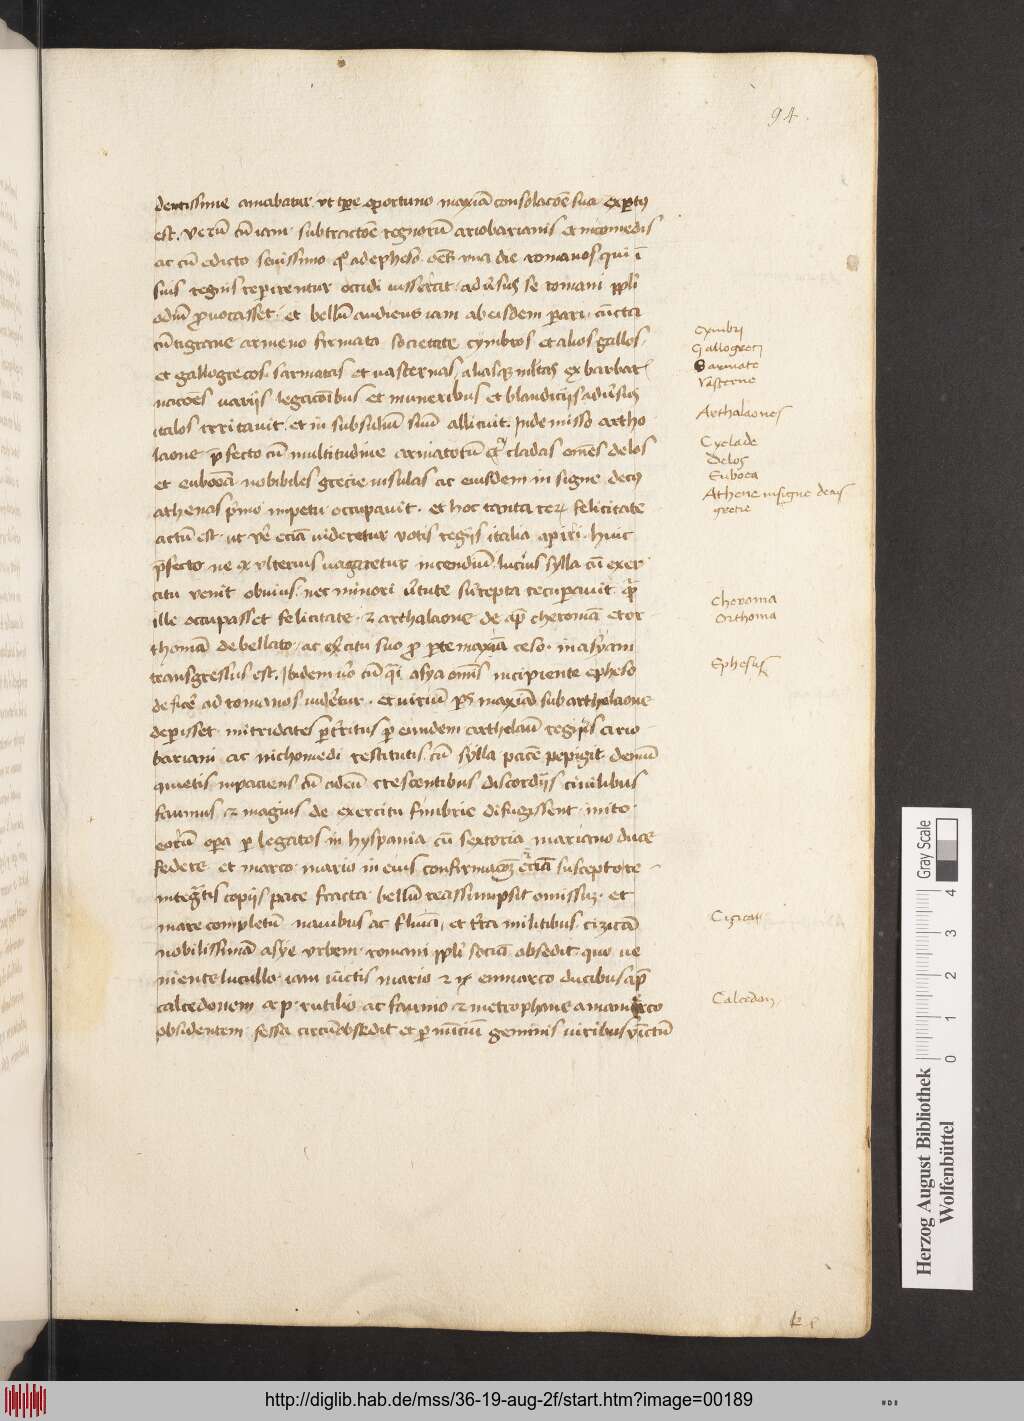 94
dentissime amabatur ut tp̄re oportuno maxīā consolacōe sua exptꝰ
est. Verū cū iam subtractōe regnorū ariobarianis et nicomedis
ac cū edicto sevissimo qͦ ad ephesō oēs una die romanos qui ī
suis regnis reperirentur occidi iusserat adūsus se romani ppli
odiū provocasset. et bellū audiens iam ab eisdem parari cūcta
cū tigrane armeno firmata societate cymbros et alios gallos
et gallogrecos sarmatas et vasternas aliasqꝫ mltas ex barbarꝭ
nacōes variis legacōibus et muneribus et blandiciis adūsus
italos irritavit. et in subsidiū suū allicuit. Inde misso artho
laone p̄fecto cū multitudine armatorū cycladas om̄es delos
et euboeā nobibiles grecie insulas ac eiusdem insigne decꝰ
athenas p̄mo impetu occupavit. et hoc tanta reꝝ felicitate
actū est. ut v̄e eciā videretur votis regiis italia aperiri. huic
p̄fecto ne ulterius vagaretur incendiū. lucius sylla cū exer
citu venit obvius. nec minori v̄tute surrepta recuperavit. q̄
ille occupasset felicitate. et arthalaone de ap̄ cheromā et or
thomā debellato. ac exercitu suo pro parte maxīa ceso. in asyam
transgressus est. Ibidem v̄o cū q̄i asya om̄s incipiente epheso
deficē ad romanos viderētur. et viriū ps maxīā sub arthalaone
deperisset. mitridates perterritus per eundem arthelaū regnis ario
bariani ac nichomedi restitutis cū sylla pacē pepigit. demū
quietis inpaciens cū adeū crescentibus discordiis civilibus
fannius et magius de exercitu fimbrie difugissent. inito
eorū opera per legatos in hyspania cū sertoria mariano duce
federe. et marco mario in eius confirmacōꝫ eciā susceptore
integratis copiis pace fracta bellū reassumpsit omissuꝫ. et
mare completū navibus ac fluvia. et terra militibus. cizicā
nobilissimā asye urbem. romani ppli sociā obsedit. quo ve
niente lucullo. iam victis mario et enmarco ducibus ap̄
calcedonem ac p. rutilio. ac fannio et metrophane a mamerco
obsidentem fessa circūobsedit et per nunciū geminis viribus victū
Cymbri
Gallogreci
Sarmate
Vasterne
Arthalaones
Cyclade
Delos
Euboea
Athene insigne decus
grecie
Cheroma
Orthoma
Ephesus
Cizica
Calcedon
Herzog August Bibliothek
Wolfenbüttel
Gray Scale
0 1 2 3 4
http://diglib.hab.de/mss/36-19-aug-2f/start.htm?image=00189